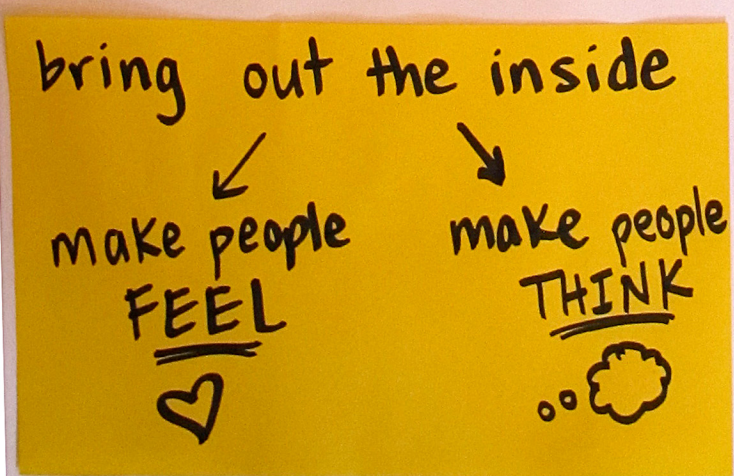 bring out the inside
make people
FEEL
make people
THINK